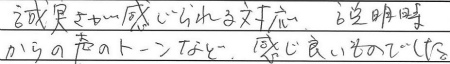 誠実さが感じられる対応、説明時
からの声のトーンなど、感じ良いものでした